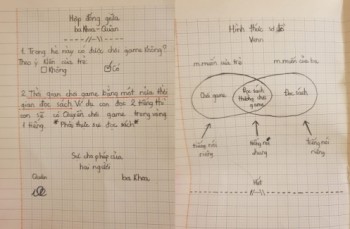 Hợp đồng giữa
ba Khoa - Quân
1. Trong hè này có được chơi game không?
Theo ý kiến của trẻ
Không Có
2. Thời gian chơi game bằng một nửa thời
gian đọc sách. Ví dụ con đọc 2 tiếng thì
con sẽ có quyền chơi game trong vòng
1 tiếng. * Phải thực sự đọc sách *
Sự cho phép của
hai người
Quân ba Khoa
Hình thức sơ đồ
Venn
m.muốn của trẻ m.muốn của ba
Chơi game
Đọc sách
thưởng chơi
game
Đọc sách
tiếng nói
riêng
tiếng nói
chung
tiếng nói
riêng
Hết